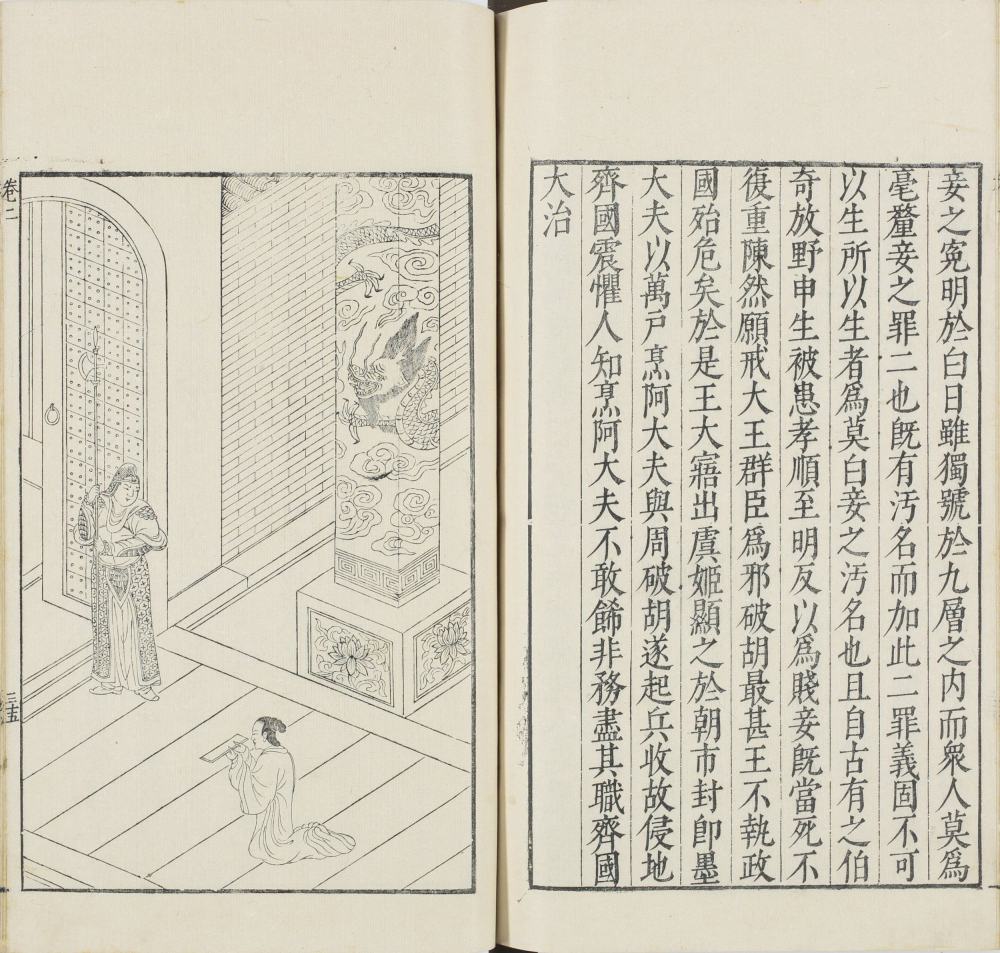 妾之寃明於白日雖獨號於九層之内而衆人莫爲
毫釐妾之罪二也既有汚名而加此二罪義固不可
以生所以生者爲莫白妾之汚名也且自古有之伯
奇放野申生被患孝順至明反以爲賤妾既當死不
復重陳然願戒大王群臣爲邪破胡最甚王不執政
國殆危矣於是王大寤出虞姬顯之於朝市封即墨
大夫以萬戸烹阿大夫與周破胡遂起兵收故侵地
齊國震懼人知烹阿大夫不敢餙非務盡其職齊國
大治
卷二
三五